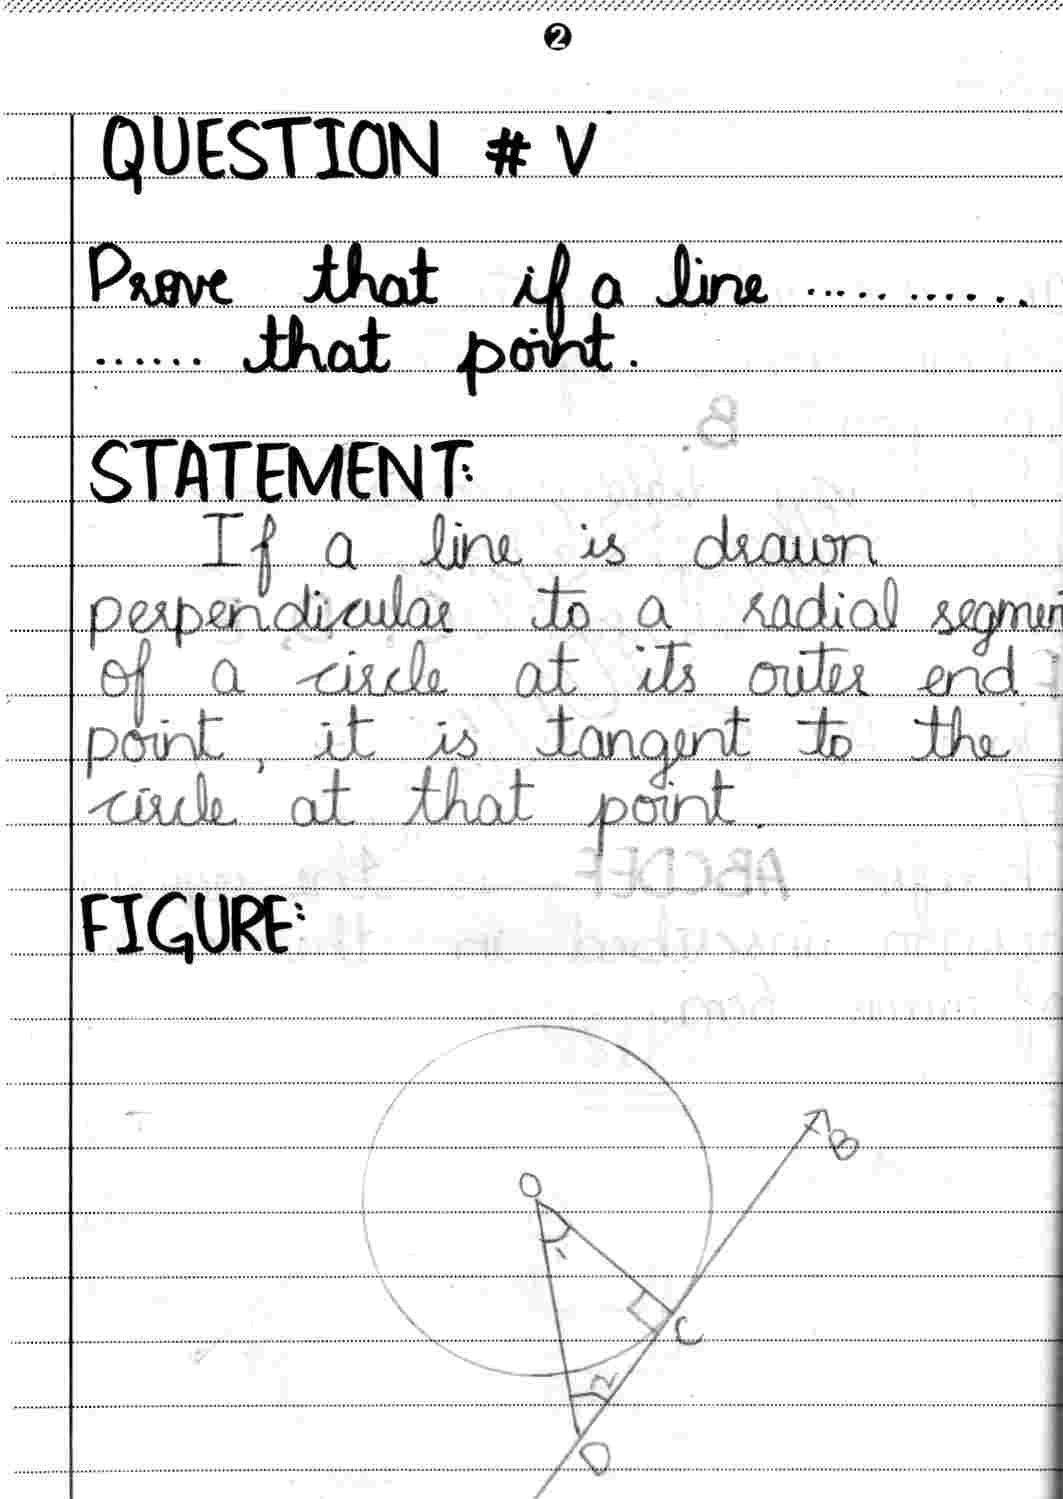 2
QUESTION # V
Prove that if a line ...........
...... that point.
STATEMENT:
If a line is drawn
perpendicular to a radial segmen
of a circle at its outer end
point, it is tangent to the
circle at that point.
FIGURE:
B
O
1
C
2
D